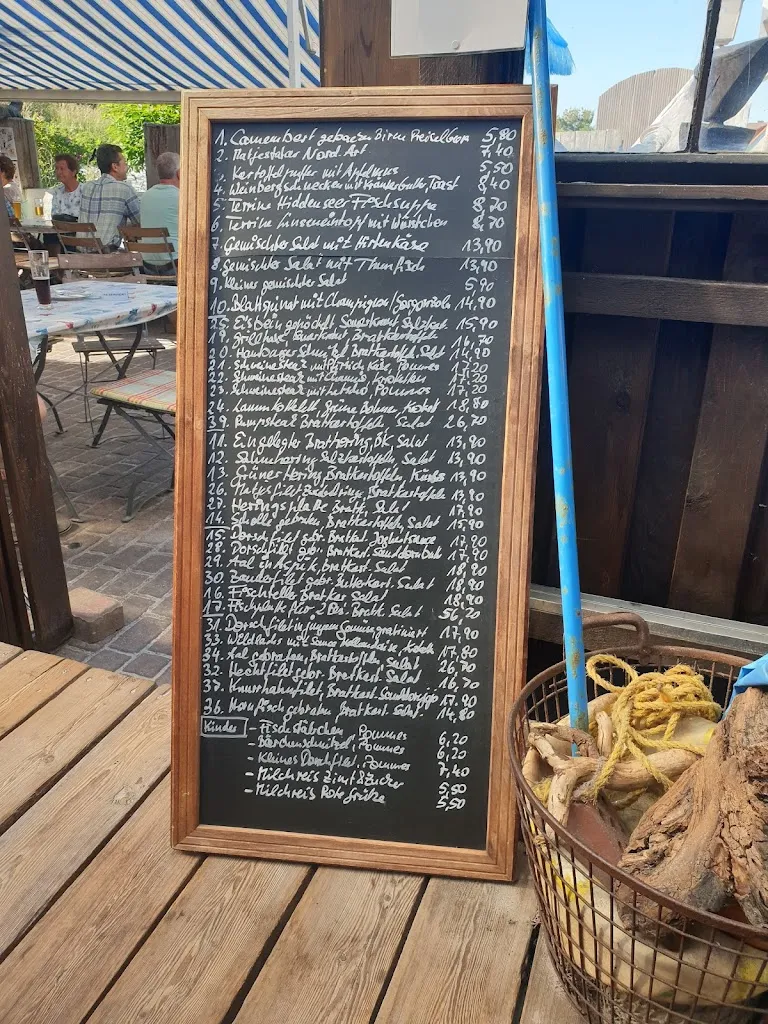 1. Camembert gebacken Birne Preiselbeer 5,80
2. Matjestatar Nord Art 7,40
Kartoffelpuffer mit Apfelmus 5,50
4. Weinbergschnecken mit Kräuterbutter, Toast 8,40
5. Terrine Hiddenseer Fischsuppe 8,70
6. Terrine Linseneintopf mit Würstchen 8,70
7. Gemischter Salat mit Hirtenkäse 13,90
8. Gemischter Salat mit Thunfisch 13,90
9. Kleines gemischter Salat 5,90
10. Blattspinat mit Champignon/Gorgonzola 14,90
25. Eisbein gepöckelt Sauerkraut Salzkart. 15,90
19. Grillhaxe, Sauerkraut Bratkartoffeln 16,70
20. Hamburger Schnitzel Bratkartoffeln, Salat 14,90
21. Schweinesteak mit Pfirsich Käse, Pommes 17,20
22. Schweinesteak mit Kroketten 17,20
23. Schweinesteak mit Letscho, Pommes 17,20
24. Lammkotelett, grüne Bohne, Kroket 18,80
39. Rumpsteak Bratkartoffeln, Salat 26,70
11. Eingelegter Brathering, BK, Salat 13,90
12. Salzkartoffeln, Salat 13,90
13. Grüner Hering, Bratkartoffeln, 13,90
26. Matjesfilet Bratkartoffeln 13,90
27. Heringsplatte Bratk., Sal.
14. Scholle gebraten, Bratkartoffeln, Salat 15,90
15. Dorschfilet gebr. Bratkart. Joghurtsauce 17,90
28. Dorschfilet gebr. Bratkart. 17,90
29. Aal in Aspik, Bratkart. Salat 18,90
30. Zanderfilet gebr. Salat 18,90
16. Fischteller Bratkar. Salat 18,90
17. Fischplatte für 2 Bratk. Salat 56,20
31. Dorschfilet gratiniert 17,90
33. Wildlachs mit 17,80
34. Aal gebraten, Bratkartoffeln, Salat 26,70
32. Hechtfilet gebr. Bratkart. Salat 16,70
37. Knurrhahnfilet, Bratkart. 17,90
36. Hornfisch gebraten Bratkart. Salat. 14,80
Kinder - Fischstäbchen, Pommes 6,20
- Bärchenschnitzel, Pommes 6,20
- Kleines Dorschfilet, Pommes 7,40
- Milchreis Zimt & Zucker 5,50
- Milchreis Rote Grütze 5,50